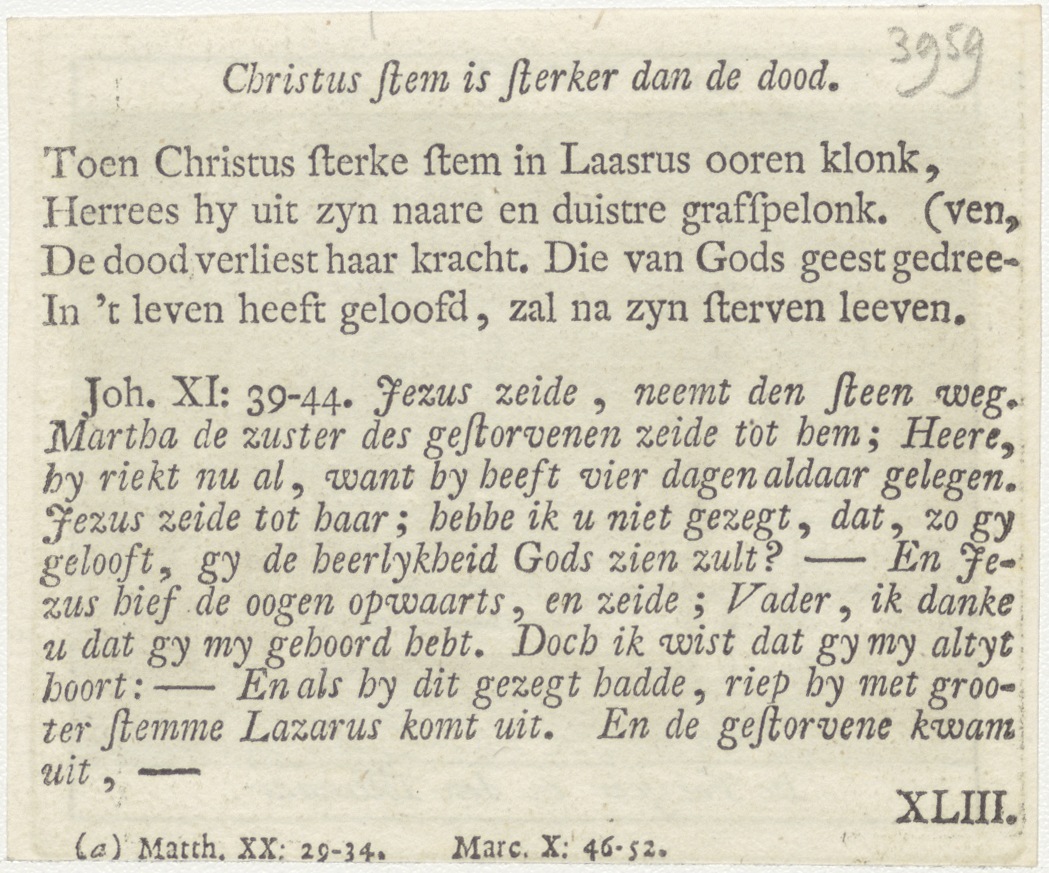 3959
Christus ſtem is ſterker dan de dood.
Toen Christus ſterke ſtem in Laasrus ooren klonk,
Herrees hy uit zyn naare en duistre grafſpelonk. (ven,
De dood verliest haar kracht. Die van Gods geest gedree-
In 't leven heeft geloofd, zal na zyn ſterven leeven.
Joh. XI: 39-44. Jezus zeide, neemt den ſteen weg.
Martha de zuster des geſtorvenen zeide tot hem; Heere,
hy riekt nu al, want hy heeft vier dagen aldaar gelegen.
Jezus zeide tot haar; hebbe ik u niet gezegt, dat, zo gy
gelooft, gy de heerlykheid Gods zien zult? — En Je-
zus hief de oogen opwaarts, en zeide; Vader, ik danke
u dat gy my gehoord hebt. Doch ik wist dat gy my altyt
hoort: — En als hy dit gezegt hadde, riep hy met groo-
ter ſtemme Lazarus komt uit. En de geſtorvene kwam
uit, —
XLIII.
(a) Matth. XX: 29-34. Marc. X: 46-52.